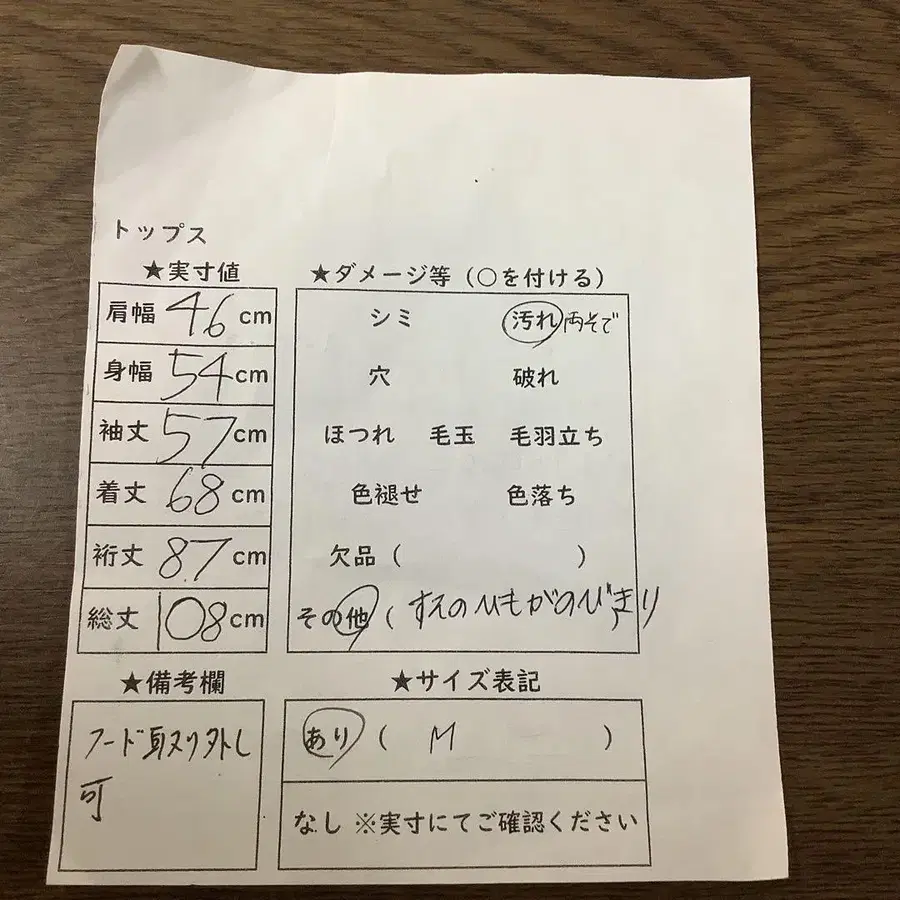 トップス
★実寸値
肩幅 46 cm
身幅 54 cm
袖丈 57 cm
着丈 68 cm
裄丈 87 cm
総丈 108 cm
★ダメージ等（○を付ける）
シミ 汚れ 両そで
穴 破れ
ほつれ 毛玉 毛羽立ち
色褪せ 色落ち
欠品（ ）
その他（すそのひもがのびきり
★備考欄
フード取り外し
可
★サイズ表記
あり（ M ）
なし ※実寸にてご確認ください